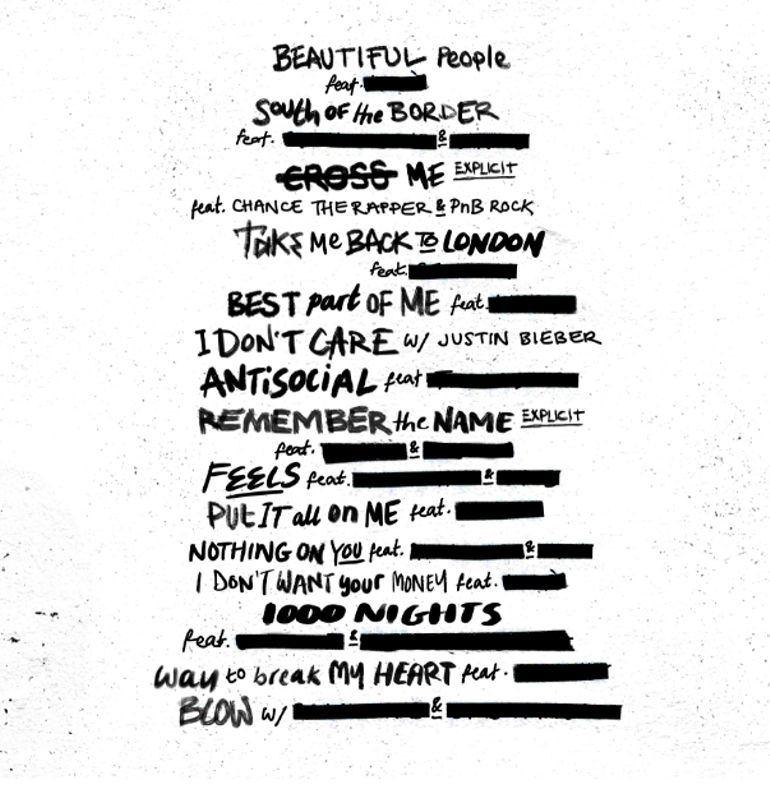 BEAUTIFUL People
feat.
South OF the BORDER
feat. &
CROSS ME EXPLICIT
feat. CHANCE THE RAPPER & PnB ROCK
TAKE Me BACK TO LONDON
feat.
BEST part OF ME feat.
I DON'T CARE w/ JUSTIN BIEBER
ANTiSOCiAL feat
REMEMBER the NAME EXPLICIT
feat. &
FEELS feat. &
PUt IT all on ME feat.
NOTHING ON YOU feat. &
I DON'T WANT your MONEY feat.
1000 NIGHTS
feat. &
way to break MY HEART feat.
BLOW w/ &